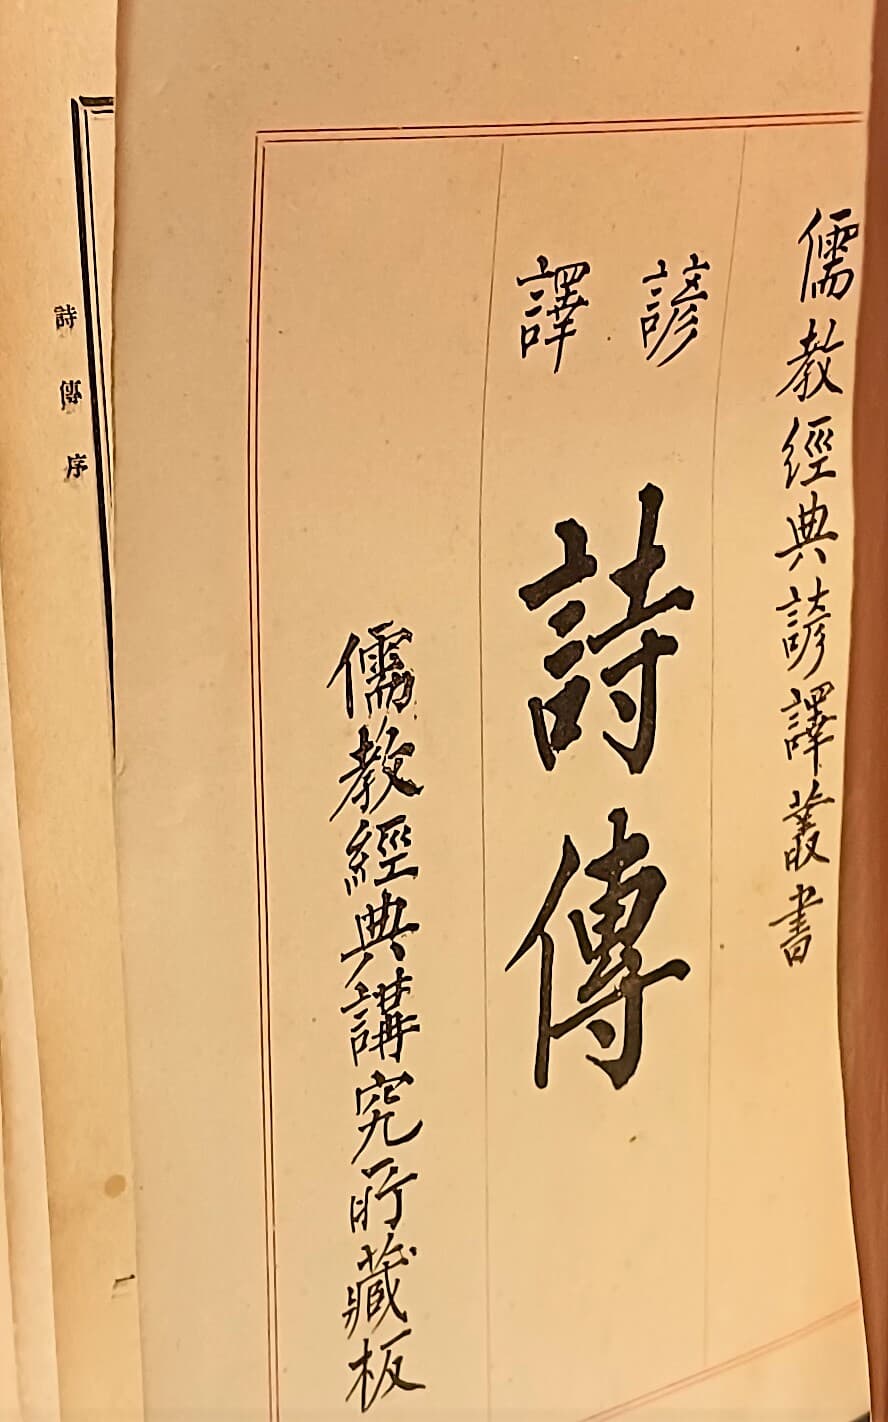 儒教經典諺譯叢書
諺譯
詩傳
儒教經典講究所藏板
詩傳序
一